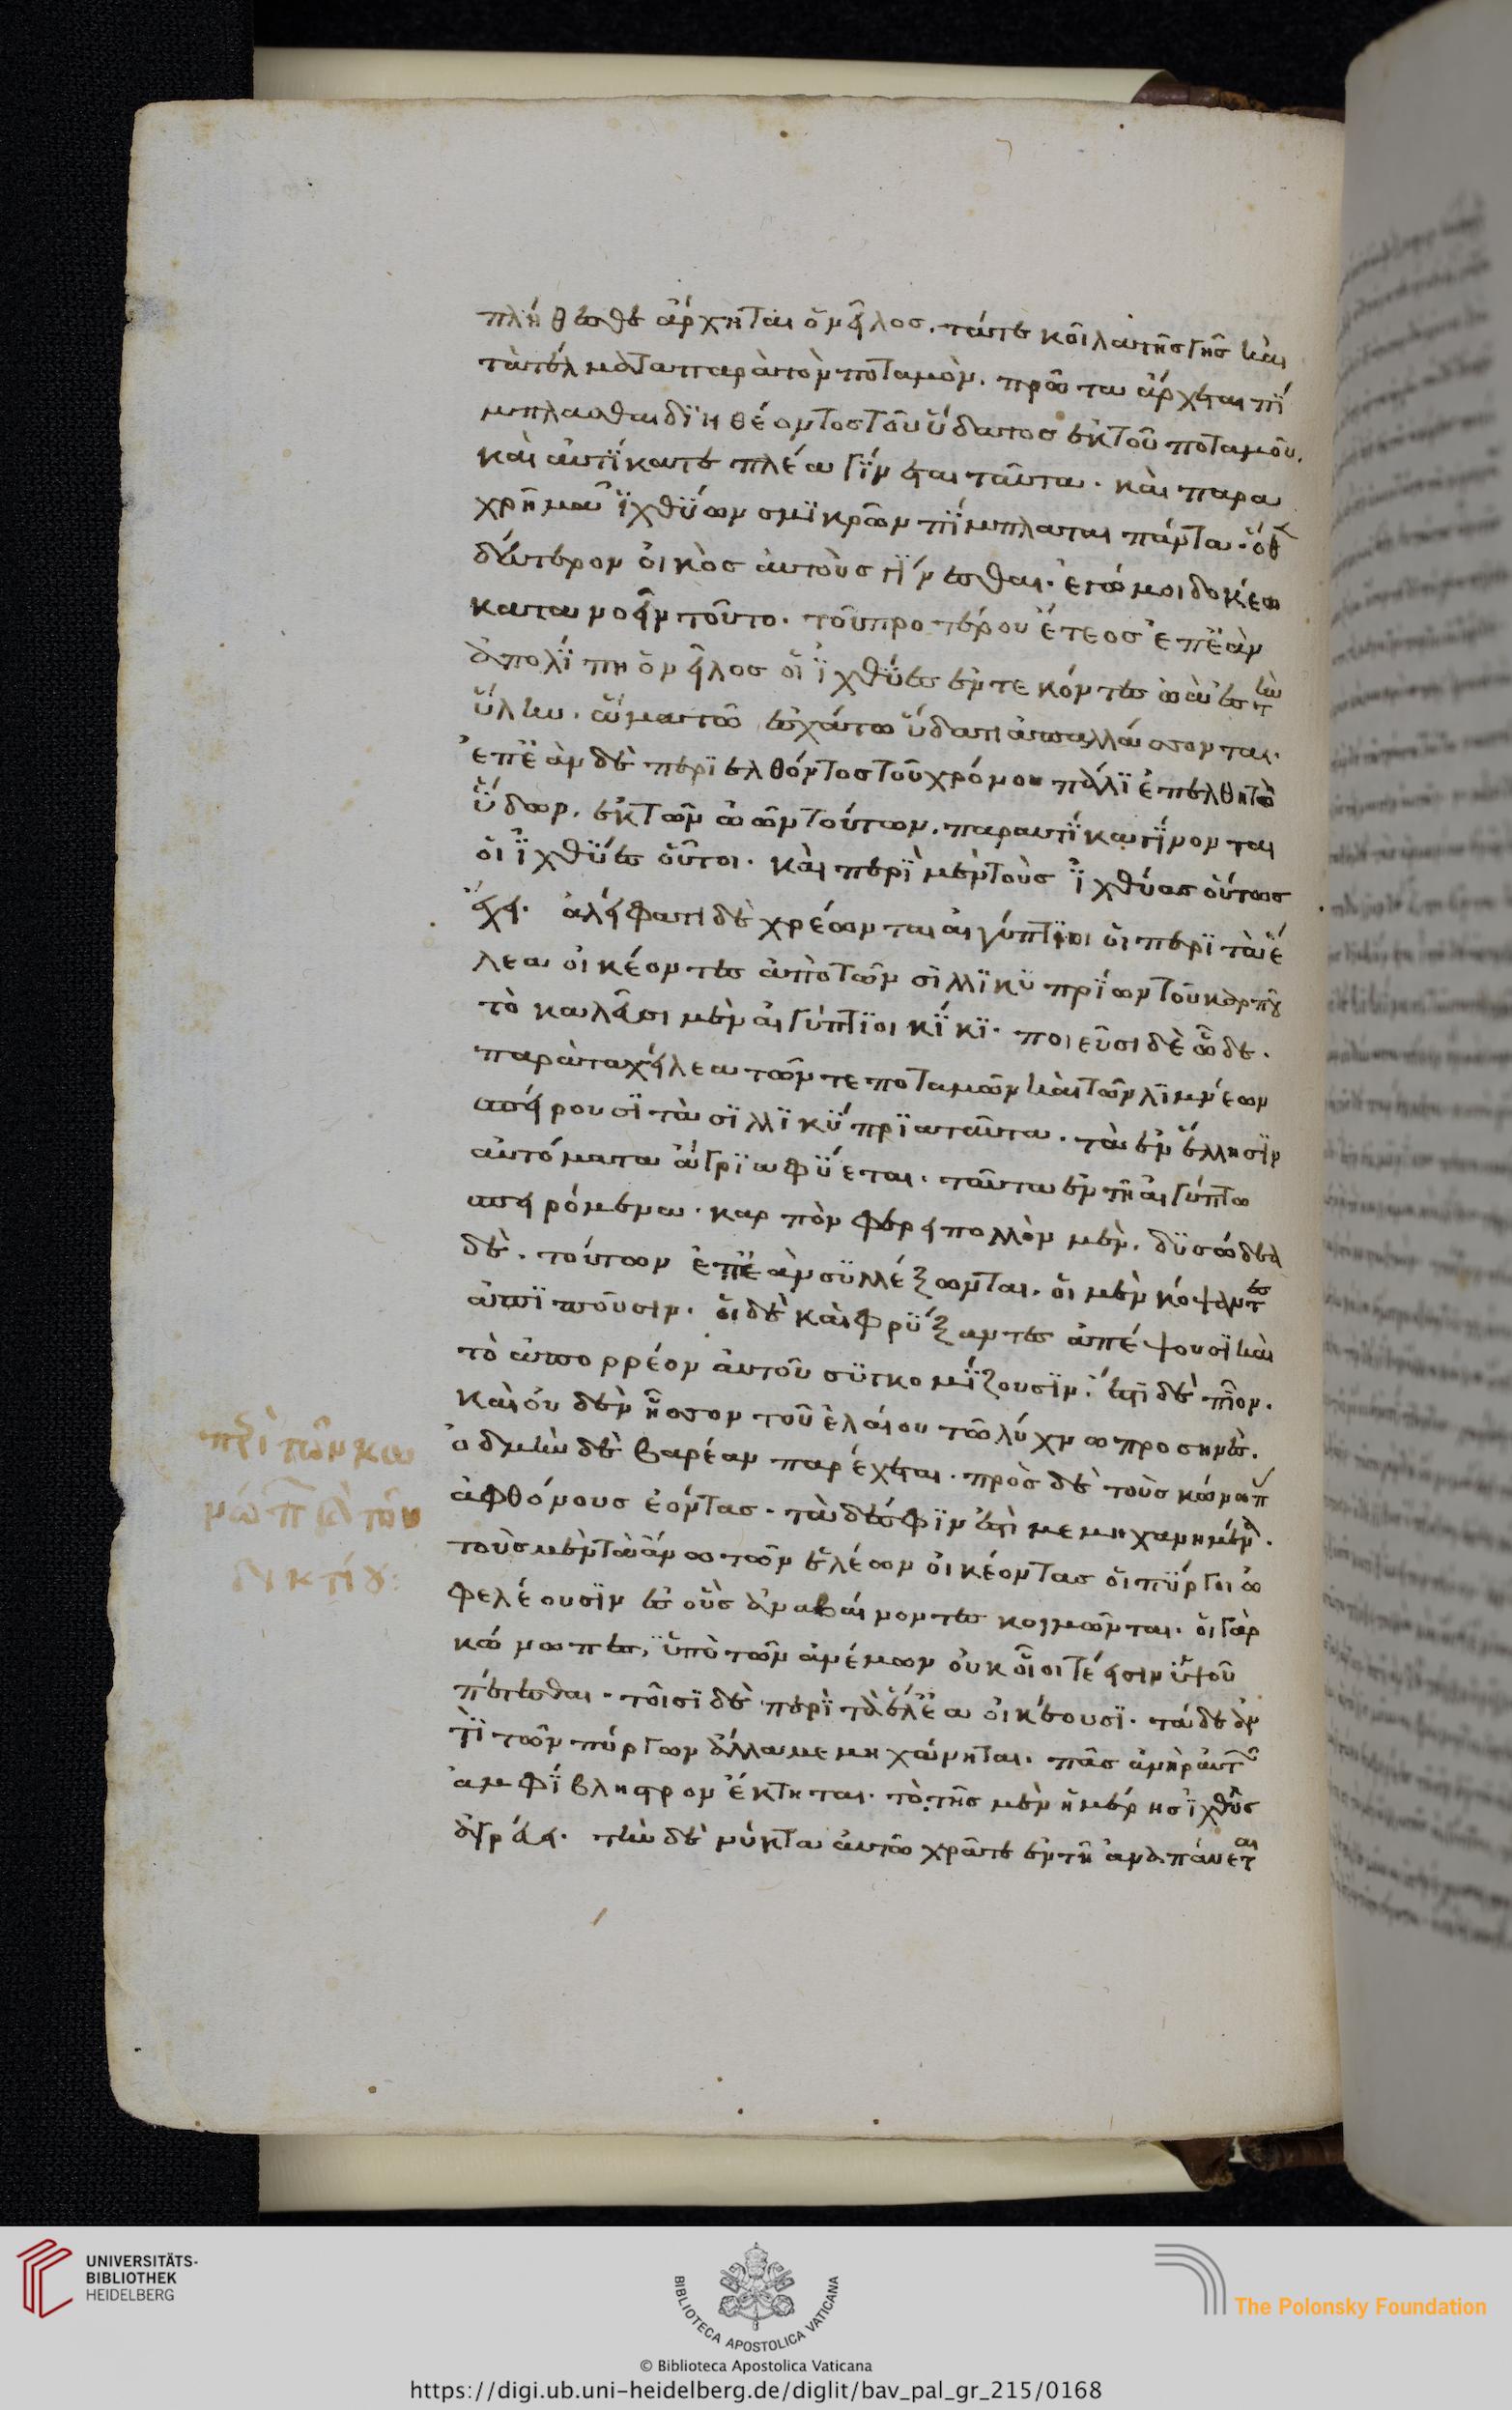 πλήθεσθε ἄρχηται ὁ νεῖλος. τά τε κοῖλα τῆς γῆς καὶ
τὰ τέλματα τὰ παρὰ τὸν ποταμὸν. πρῶτα ἄρχεται πί
μπλασθαι διηθέοντος τοῦ ὕδατος ἐκ τοῦ ποταμοῦ.
καὶ αὐτίκα τε πλέα γίνεται ταῦτα. καὶ παρα
χρῆμα ἰχθύων σμικρῶν πίμπλαται πάντα. ὁθ
δεύτερον οἰκὸς αὐτοὺς γίνεσθαι. ἐγώ μοι δοκέω
κατανοεῖν τοῦτο. τοῦ προτέρου ἔτεος ἐπεὰν
ἀπολίπη ὁ νεῖλος οἱ ἰχθύες ἐντεκόντες ὠὰ ἐς τὴν
ὕλην. ἅμα τῶ ἐσχάτω ὕδατι ἀπαλλάσσονται.
ἐπεὰν δὲ περιελθόντος τοῦ χρόνου πάλι ἐπέλθη τὸ
ὕδωρ. ἐκ τῶν ὠῶν τούτων. παραυτίκα γίνονται
οἱ ἰχθύες οὗτοι. καὶ περὶ μὲν τοὺς ἰχθύας οὕτως
ἔχει. ἀλείφατι δὲ χρέωνται αἰγύπτιοι οἱ περὶ τὰ ἕ
λεα οἰκέοντες ἀπὸ τῶν σιλλικυπρίων τοῦ καρποῦ
τὸ καλεῦσι μὲν αἰγύπτιοι κίκι. ποιεῦσι δὲ ὧδε.
παρὰ τὰ χείλεα τῶν τε ποταμῶν καὶ τῶν λιμνέων
σπείρουσι τὰ σιλλικύπρια ταῦτα. τὰ ἐν ἕλλησιν
αὐτόματα ἄγρια φύεται. ταῦτα ἐν τῆ αἰγύπτω
σπειρόμενα. καρπὸν φέρει πολλὸν μὲν. δυσώδεα
δὲ. τούτων ἐπεὰν συλλέξωνται. οἱ μὲν κόψαντες
ἀπιποῦσιν. οἱ δὲ καὶ φρύξαντες ἀπέψουσι καὶ
τὸ ἀπορρέον αὐτοῦ συγκομίζουσιν. ἔστι δὲ πῖον.
καὶ οὐδὲν ἧσσον τοῦ ἐλαίου τῶ λύχνω προσηνές.
ὀδμὴν δὲ βαρέαν παρέχεται. πρὸς δὲ τοὺς κώνωπ
ἀφθόνους ἐόντας. τὰ δέ σφιν ἐστὶ μεμηχανημένα.
τοὺς μὲν τὰ ἄνω τῶν ἑλέων οἰκέοντας οἱ πύργοι ὠ
φελέουσιν ἐς οὓς ἀναβαίνοντες κοιμῶνται. οἱ γὰρ
κώνωπες, ὑπὸ τῶν ἀνέμων οὐκ οἷοί τέ εἰσιν ὑψοῦ
πέτεσθαι. τοῖσι δὲ περὶ τὰ ἕλεα οἰκέουσι. τάδε ἀν
τὶ τῶν πύργων ἄλλα μεμηχάνηται. πᾶς ἀνὴρ αὐτῶ
ἀμφίβληστρον ἔκτηται. τὸ τῆς μὲν ἡμέρης ἰχθῦς
ἀγρεύει. τὴν δὲ νύκτα αὐτῶ χρᾶται ἐν τῆ ἀναπαύεται
περὶ τῶν κω
νώπ καὶ τοῦ
δικτύου:
UNIVERSITÄTS-
BIBLIOTHEK
HEIDELBERG
BIBLIOTECA APOSTOLICA VATICANA
The Polonsky Foundation
© Biblioteca Apostolica Vaticana
https://digi.ub.uni-heidelberg.de/diglit/bav_pal_gr_215/0168